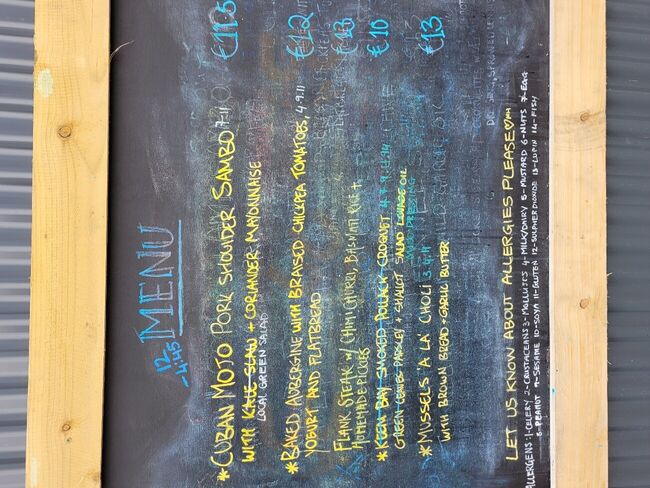 MENU
12
-4:45
*CUBAN MOJO PORK SHOULDER SAMBO 7.11 €11.5
WITH KALE SLAW + CORIANDER MAYONNAISE
LOCAL GREEN SALAD
*BAKED AUBERGINE WITH BRAISED CHICKPEA TOMATOES, 4.9.11 €12
YOGURT AND FLATBREAD
FLANK STEAK W/ CHIMICHURRI, BASMATI RICE + €13
HOMEMADE PICKLES
*KEEN BAY SMOKED POLLACK CROQUET 4.7.9.11.14 €10
GREEN LEAVES PARSLEY + SHALLOT SALAD LOVAGE OIL
DRESSING
*MUSSELS 'A LA CHOLI' 3.4.11 €13
WITH BROWN BREAD + GARLIC BUTTER
LET US KNOW ABOUT ALLERGIES PLEASE
ALLERGENS: 1-CELERY 2-CRUSTACEANS 3-MOLLUSCS 4-MILK/DAIRY 5-MUSTARD 6-NUTS 7-EGG
8-PEANUT 9-SESAME 10-SOYA 11-GLUTEN 12-SULPHER DIOXIDE 13-LUPIN 14-FISH